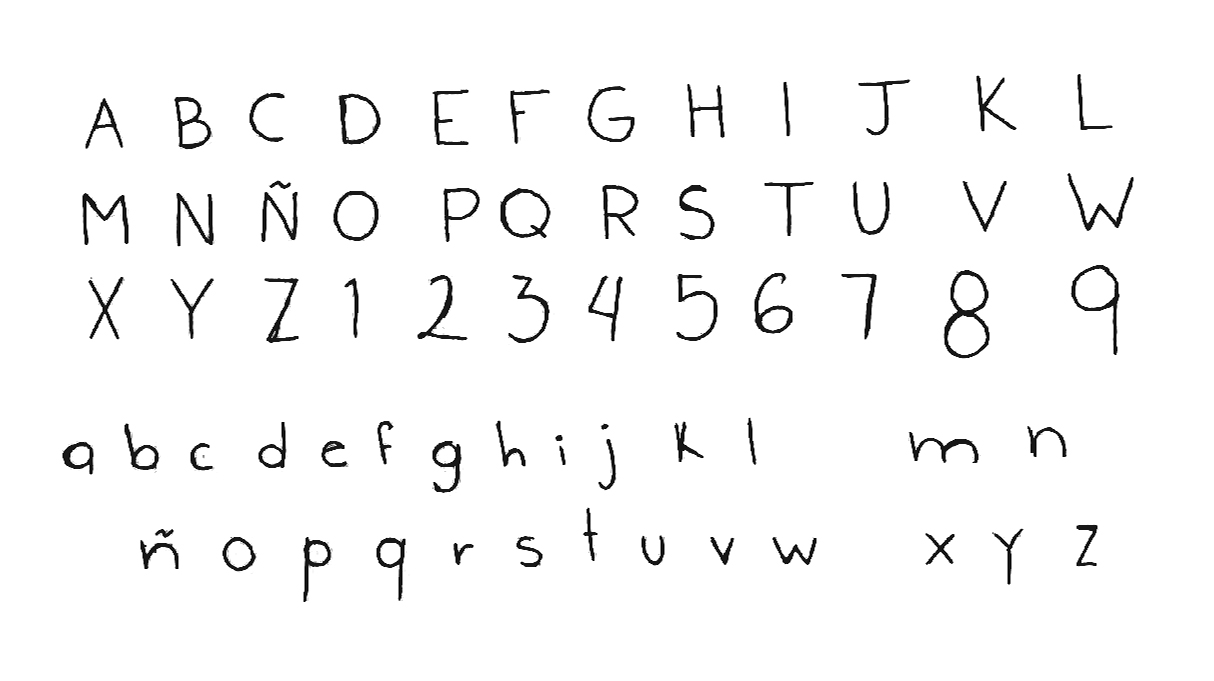 A B C D E F G H I J K L
M N Ñ O P Q R S T U V W
X Y Z 1 2 3 4 5 6 7 8 9
a b c d e f g h i j k l m n
ñ o p q r s t u v w x y z